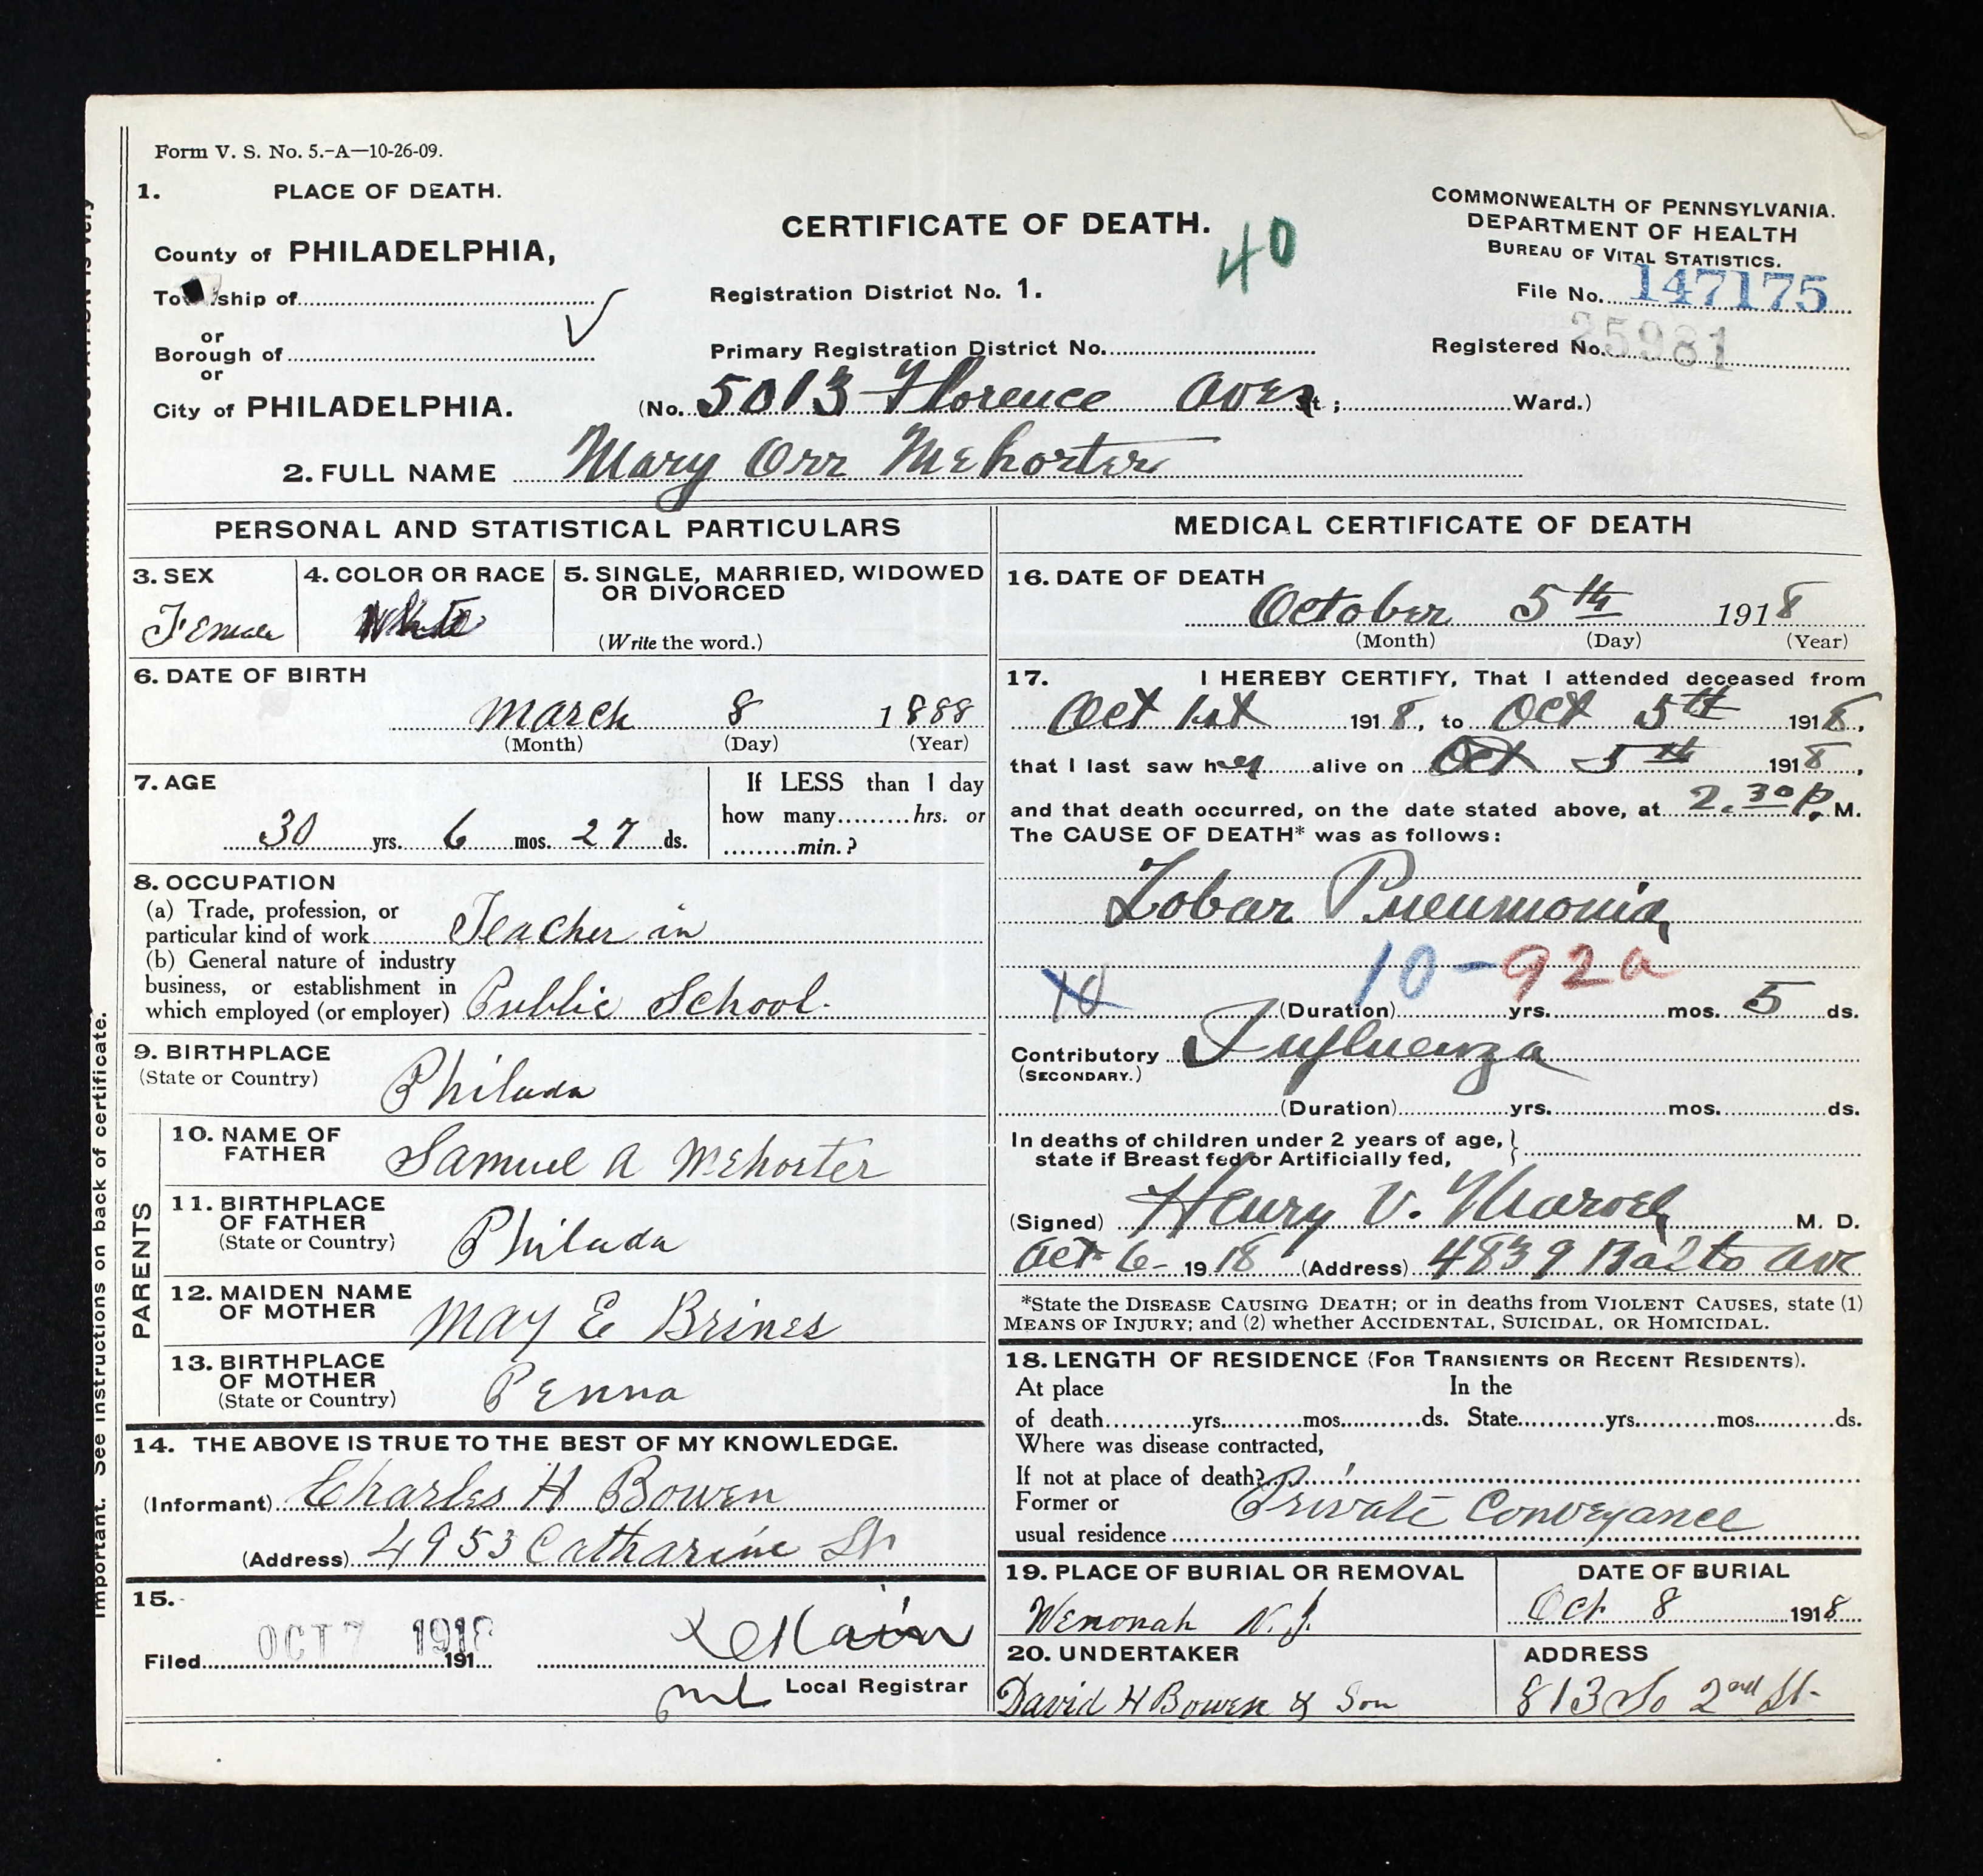 Form V. S. No. 5.-A—10-26-09.
1. PLACE OF DEATH.
County of PHILADELPHIA,
Township of
or
Borough of
or
City of PHILADELPHIA.
CERTIFICATE OF DEATH.
40
Registration District No. 1.
Primary Registration District No.
COMMONWEALTH OF PENNSYLVANIA.
DEPARTMENT OF HEALTH
BUREAU OF VITAL STATISTICS.
File No. 147175
Registered No. 25981
(No. 5013 Florence Ave St; Ward.)
2. FULL NAME Mary Orr Mehorter
PERSONAL AND STATISTICAL PARTICULARS
3. SEX
Female
4. COLOR OR RACE
White
5. SINGLE, MARRIED, WIDOWED
OR DIVORCED
(Write the word.)
6. DATE OF BIRTH
March 8 1888
(Month) (Day) (Year)
7. AGE
30 yrs. 6 mos. 27 ds.
If LESS than 1 day
how many hrs. or
min.?
8. OCCUPATION
(a) Trade, profession, or
particular kind of work Teacher in
(b) General nature of industry
business, or establishment in
which employed (or employer) Public School.
9. BIRTHPLACE
(State or Country)
Philada
PARENTS
10. NAME OF
FATHER
Samuel A Mehorter
11. BIRTHPLACE
OF FATHER
(State or Country)
Philada
12. MAIDEN NAME
OF MOTHER
May E Brines
13. BIRTHPLACE
OF MOTHER
(State or Country)
Penna
14. THE ABOVE IS TRUE TO THE BEST OF MY KNOWLEDGE.
(Informant) Charles H Bowen
(Address) 4953 Catharine St
15.
Filed OCT 7 1918 191
Local Registrar
MEDICAL CERTIFICATE OF DEATH
16. DATE OF DEATH
October 5th 1918
(Month) (Day) (Year)
17. I HEREBY CERTIFY, That I attended deceased from
Oct 1st 1918, to Oct 5th 1918,
that I last saw her alive on Oct 5th 1918,
and that death occurred, on the date stated above, at 2.30 P. M.
The CAUSE OF DEATH* was as follows:
Lobar Pneumonia
10-92a
10
(Duration) yrs. mos. 5 ds.
Contributory Influenza
(SECONDARY.)
(Duration) yrs. mos. ds.
In deaths of children under 2 years of age,
state if Breast fed or Artificially fed,
(Signed) Henry V. M. D.
Oct 6- 1918 (Address) 4839 Balto Ave
*State the DISEASE CAUSING DEATH; or in deaths from VIOLENT CAUSES, state (1)
MEANS OF INJURY; and (2) whether ACCIDENTAL, SUICIDAL, OR HOMICIDAL.
18. LENGTH OF RESIDENCE (FOR TRANSIENTS OR RECENT RESIDENTS).
At place In the
of death yrs. mos. ds. State yrs. mos. ds.
Where was disease contracted,
If not at place of death?
Former or
usual residence
Private Conveyance
19. PLACE OF BURIAL OR REMOVAL
Wenonah N.J.
DATE OF BURIAL
Oct 8 1918
20. UNDERTAKER
David H Bowen & Son
ADDRESS
813 So 2nd St.
important. See instructions on back of certificate.